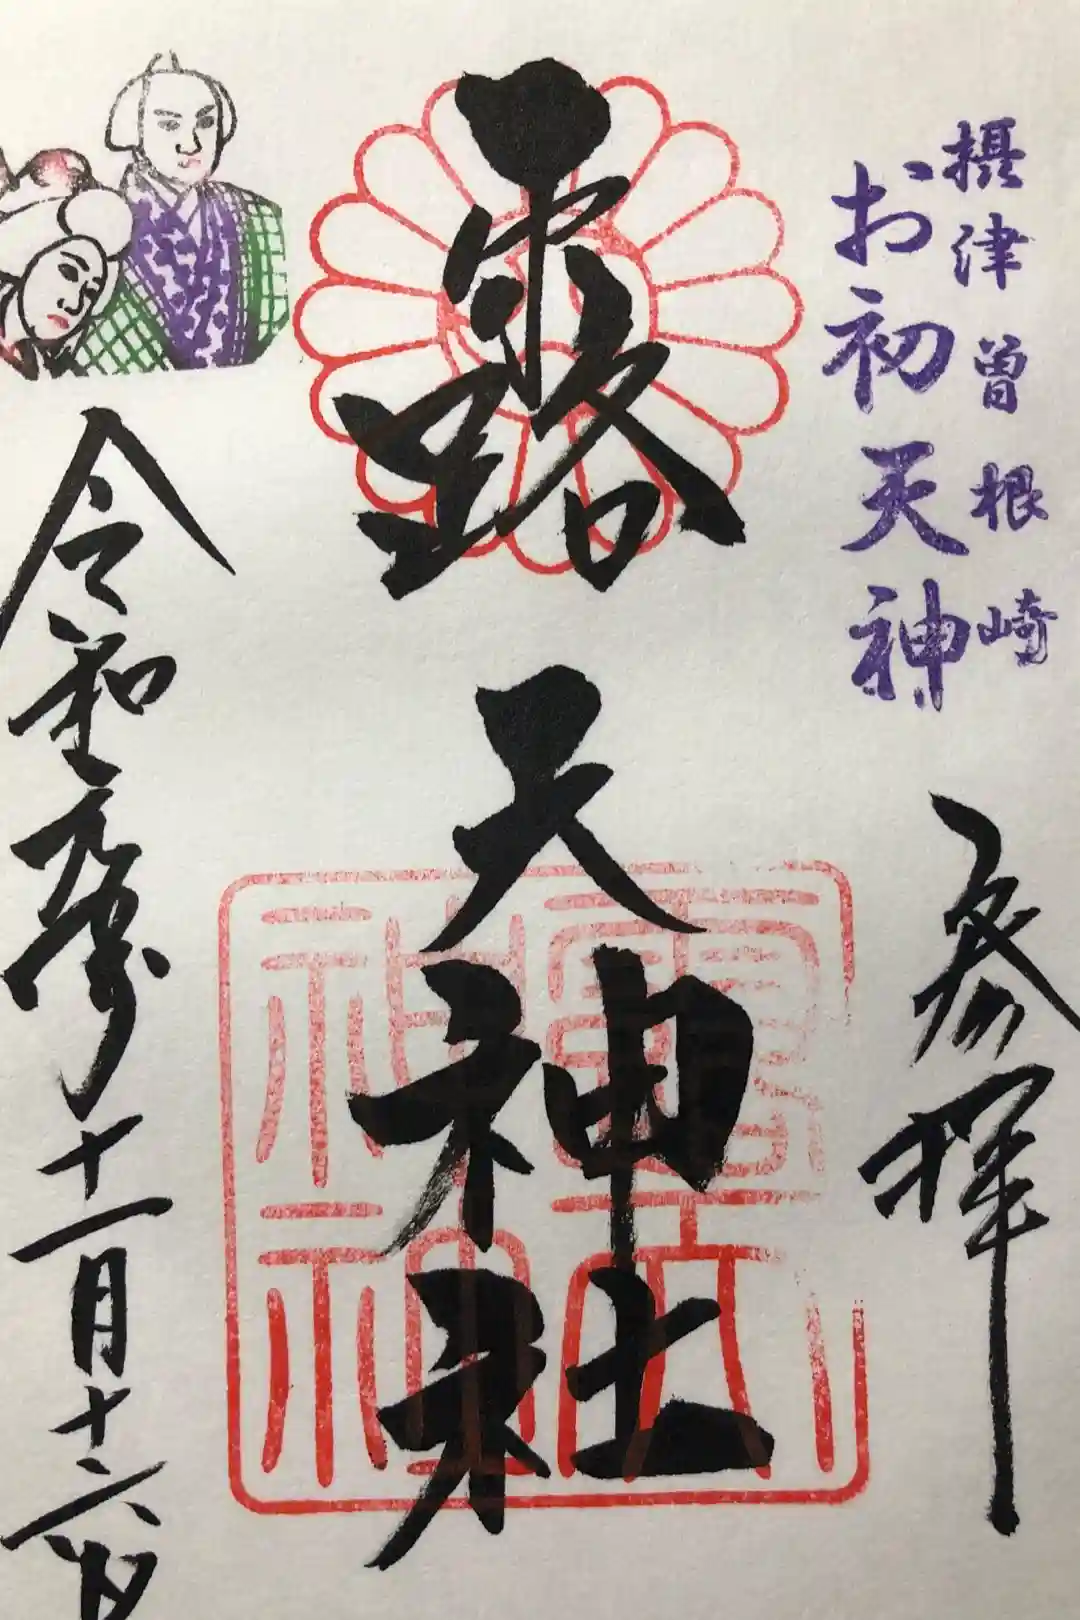 摂津曽根崎
お初天神
参拝
露天神社
露天神社
令和元年十一月十六日